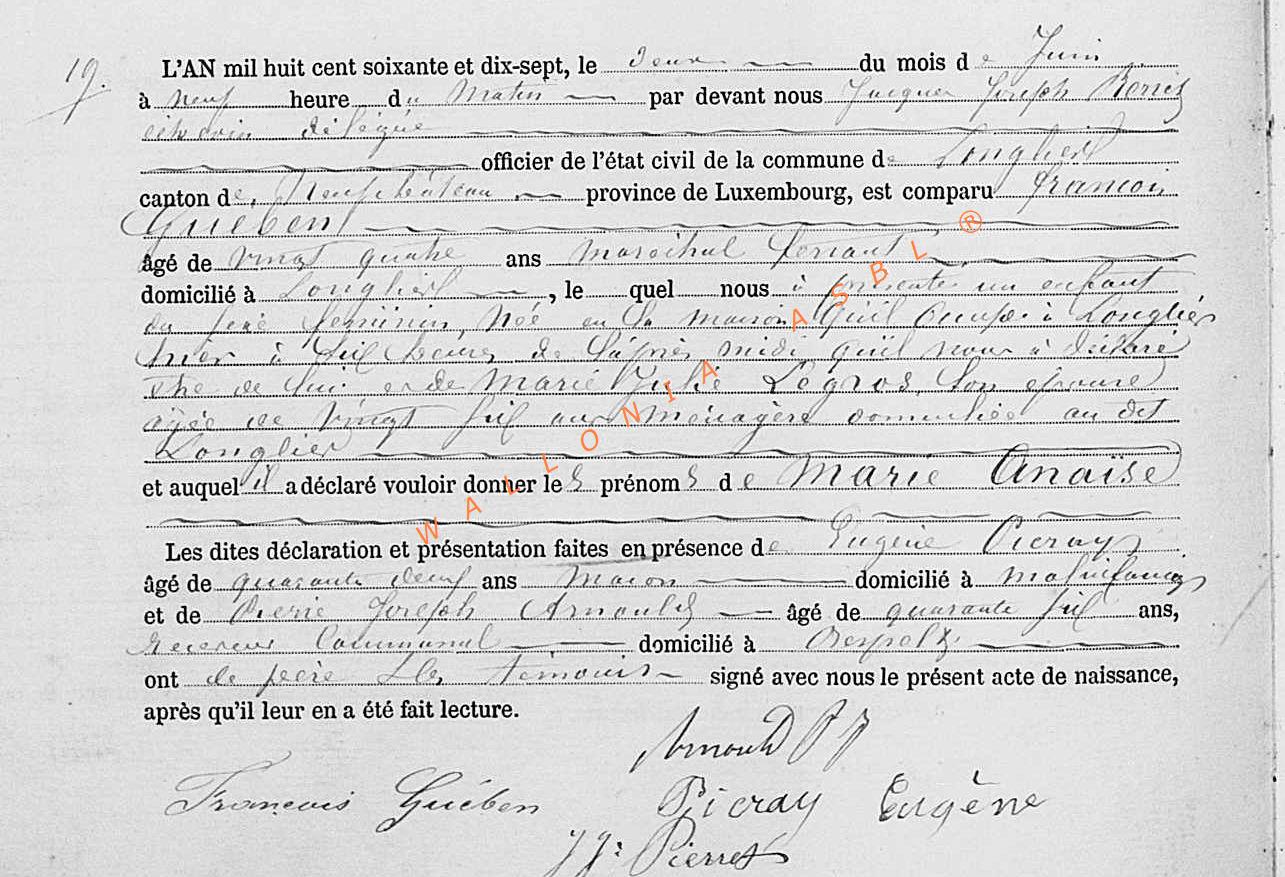 19.
L'AN mil huit cent soixante et dix-sept, le deux du mois de Juin
à neuf heure du Matin par devant nous Jacques Joseph
échevin délégué
officier de l'état civil de la commune de Longlier
canton de Neufchâteau province de Luxembourg, est comparu François
Guében
âgé de vingt quatre ans maréchal ferrant
domicilié à Longlier, le quel nous à présenté un enfant
du sexe feminin, Née en la maison qu'il occupe à Longlier
hier à six heures de l'après midi qu'il nous à déclaré
être de lui et de Marie Julie Legros, son épouse
agée de vingt six ans ménagère domiciliée au dit
Longlier
et auquel il a déclaré vouloir donner les prénoms de Marie Anaïse
Les dites déclaration et présentation faites en présence de Eugène Picray
âgé de quarante deux ans maçon domicilié à
et de Pierre Joseph Arnould âgé de quarante six ans,
receveur Communal domicilié à
ont le père & les témoins signé avec nous le présent acte de naissance,
après qu'il leur en a été fait lecture.
Arnould P J
François Guében Picray Eugène
JJ: Pierret
WALLONIA ASBL ®